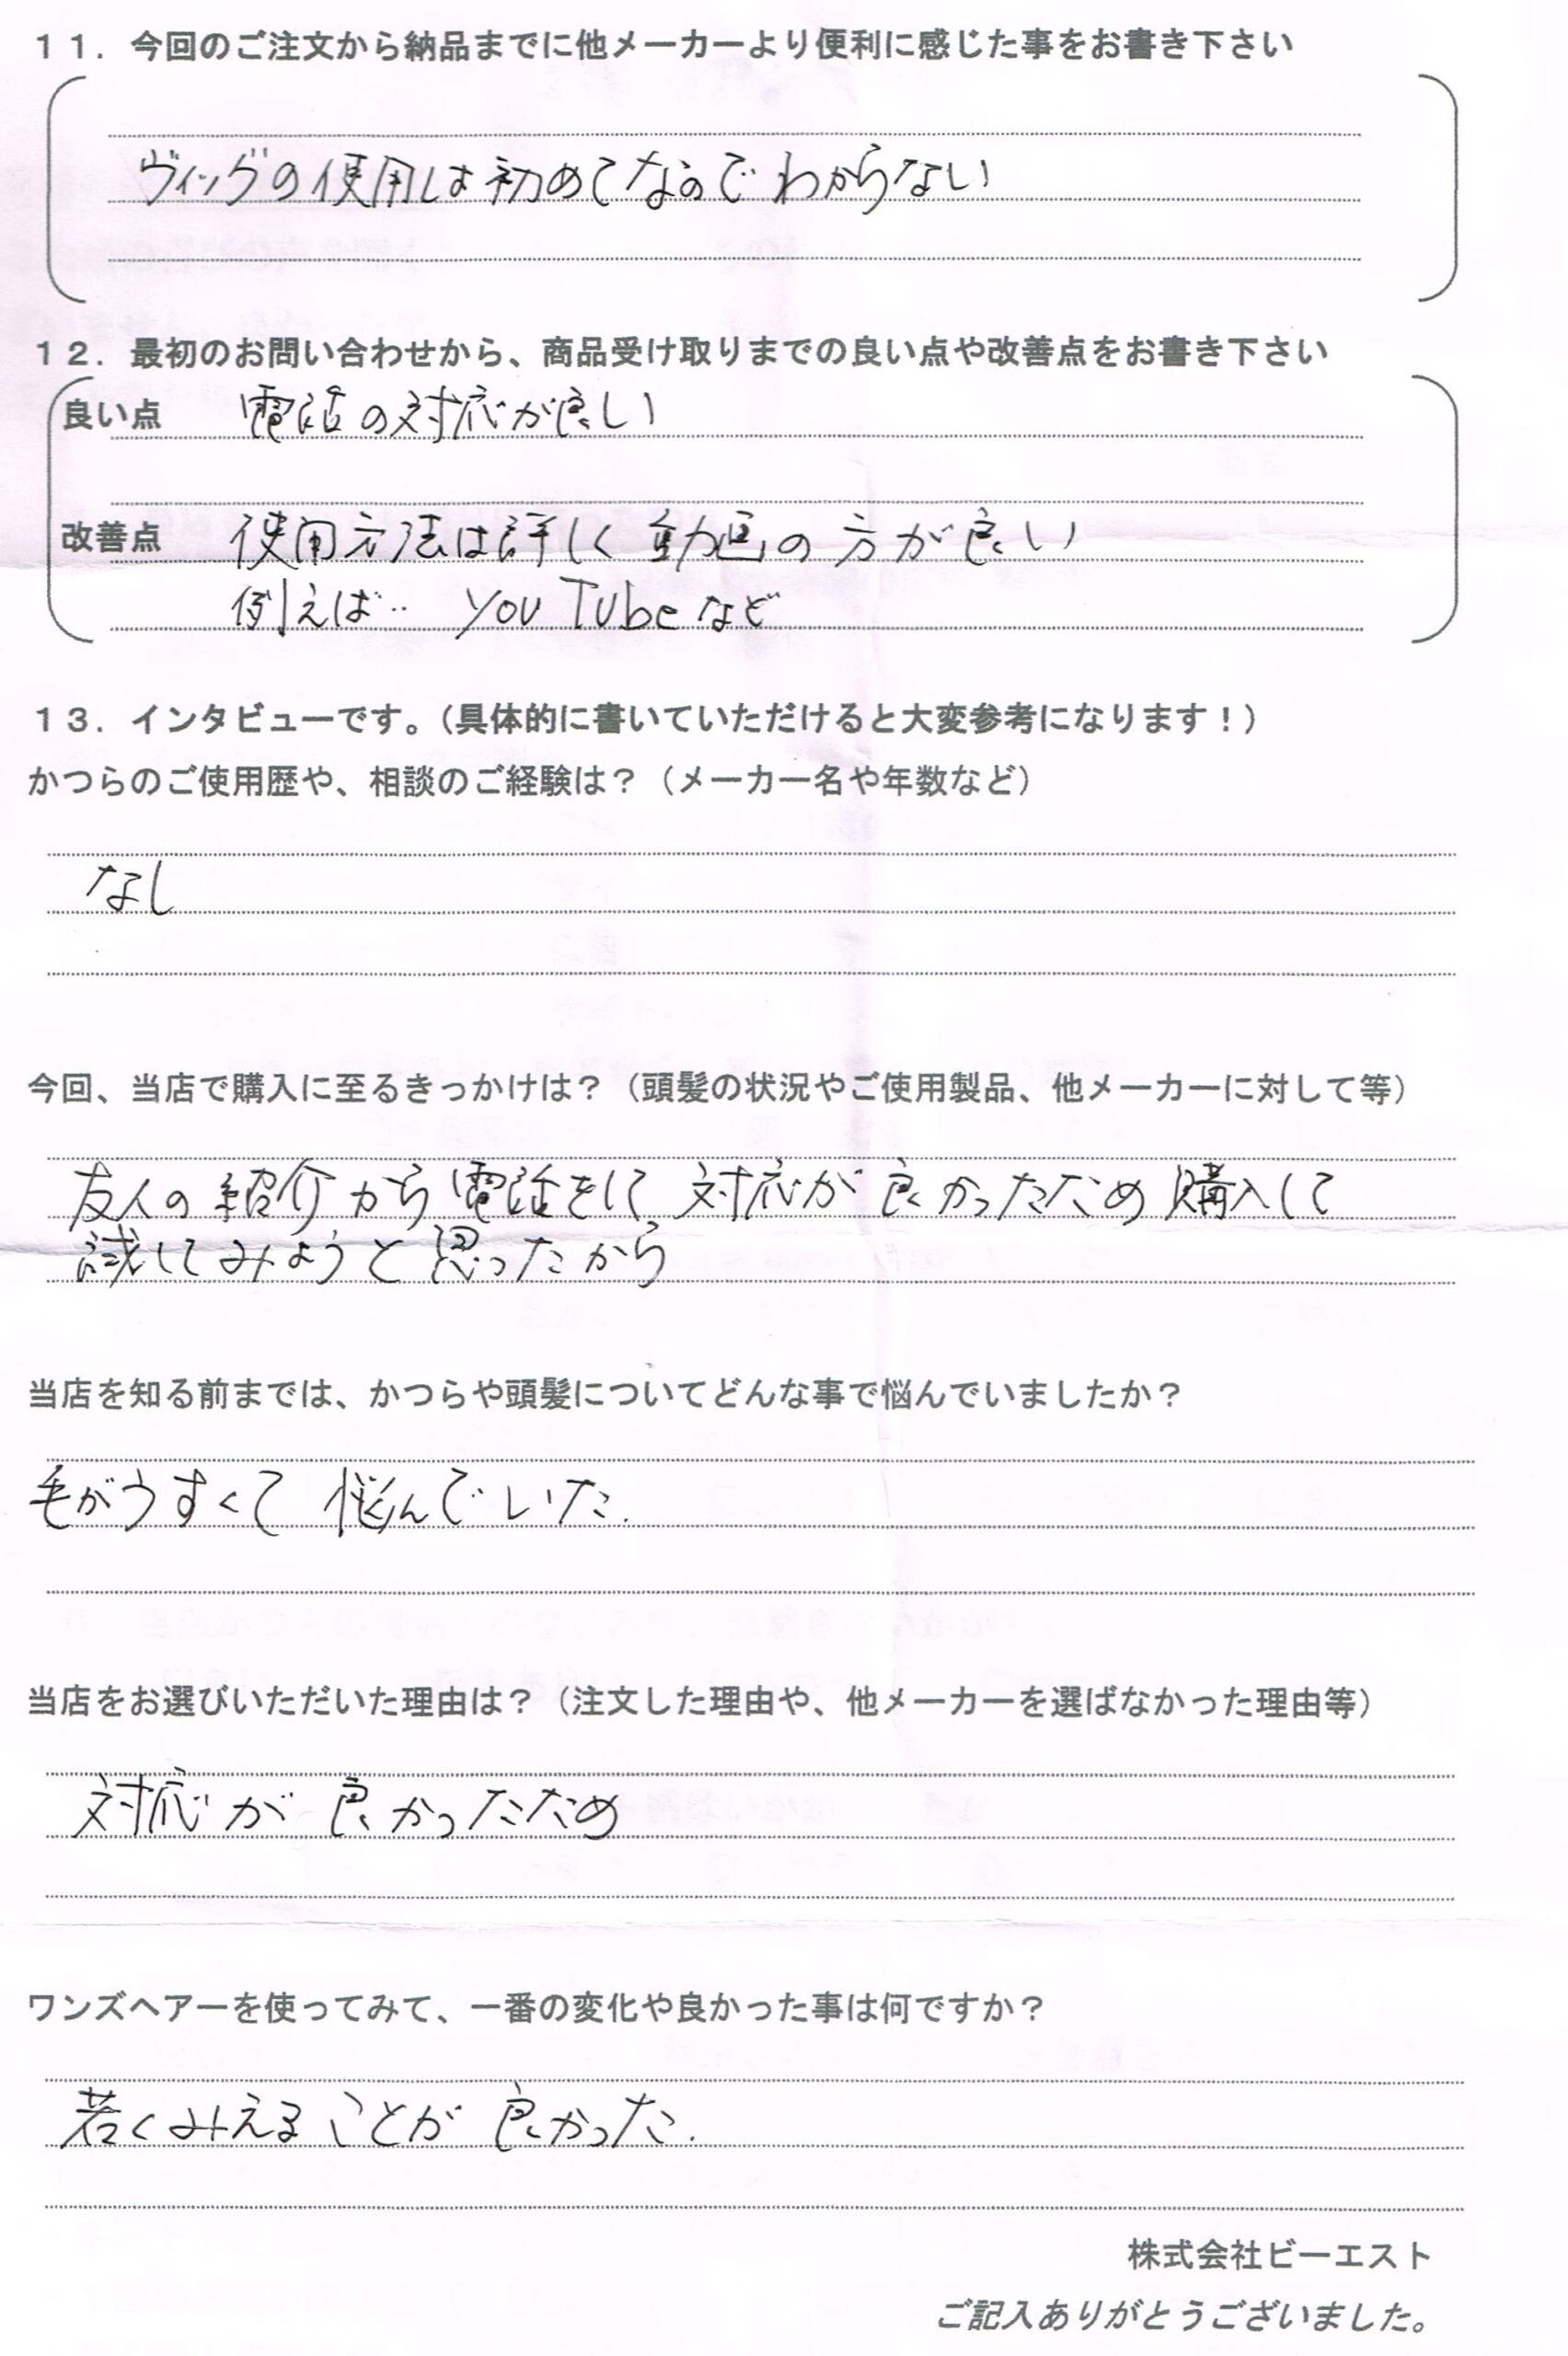 11．今回のご注文から納品までに他メーカーより便利に感じた事をお書き下さい
ヴィッグの使用は初めてなのでわからない
12．最初のお問い合わせから、商品受け取りまでの良い点や改善点をお書き下さい
良い点 電話の対応が良い
改善点 使用方法は詳しく動画の方が良い
例えば‥ YouTubeなど
13．インタビューです。（具体的に書いていただけると大変参考になります！）
かつらのご使用歴や、相談のご経験は？（メーカー名や年数など）
なし
今回、当店で購入に至るきっかけは？（頭髪の状況やご使用製品、他メーカーに対して等）
友人の紹介から電話をして対応が良かったため購入して
試してみようと思ったから
当店を知る前までは、かつらや頭髪についてどんな事で悩んでいましたか？
毛がうすくて悩んでいた.
当店をお選びいただいた理由は？（注文した理由や、他メーカーを選ばなかった理由等）
対応が良かったため
ワンズヘアーを使ってみて、一番の変化や良かった事は何ですか？
若くみえることが良かった.
株式会社ビーエスト
ご記入ありがとうございました。